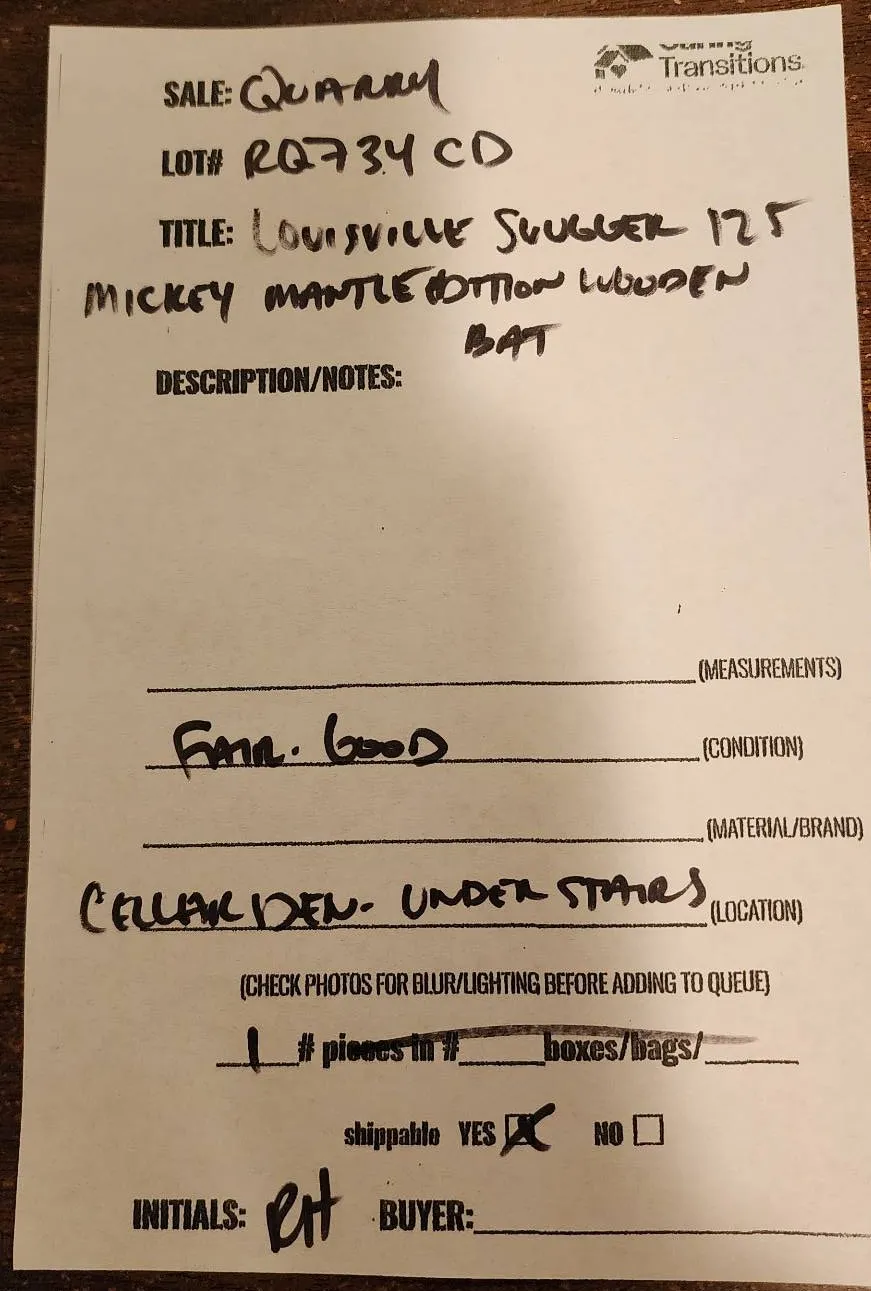 Transitions
SALE: QUARRY
LOT# RQ734 CD
TITLE: LOUISVILLE SLUGGER 125
MICKEY MANTLE EDITION WOODEN
BAT
DESCRIPTION/NOTES:
(MEASUREMENTS)
FAIR - GOOD (CONDITION)
(MATERIAL/BRAND)
CELLAR DEN - UNDER STAIRS (LOCATION)
(CHECK PHOTOS FOR BLUR/LIGHTING BEFORE ADDING TO QUEUE)
1 # pieces in # boxes/bags/
shippable YES NO
INITIALS: RH BUYER: